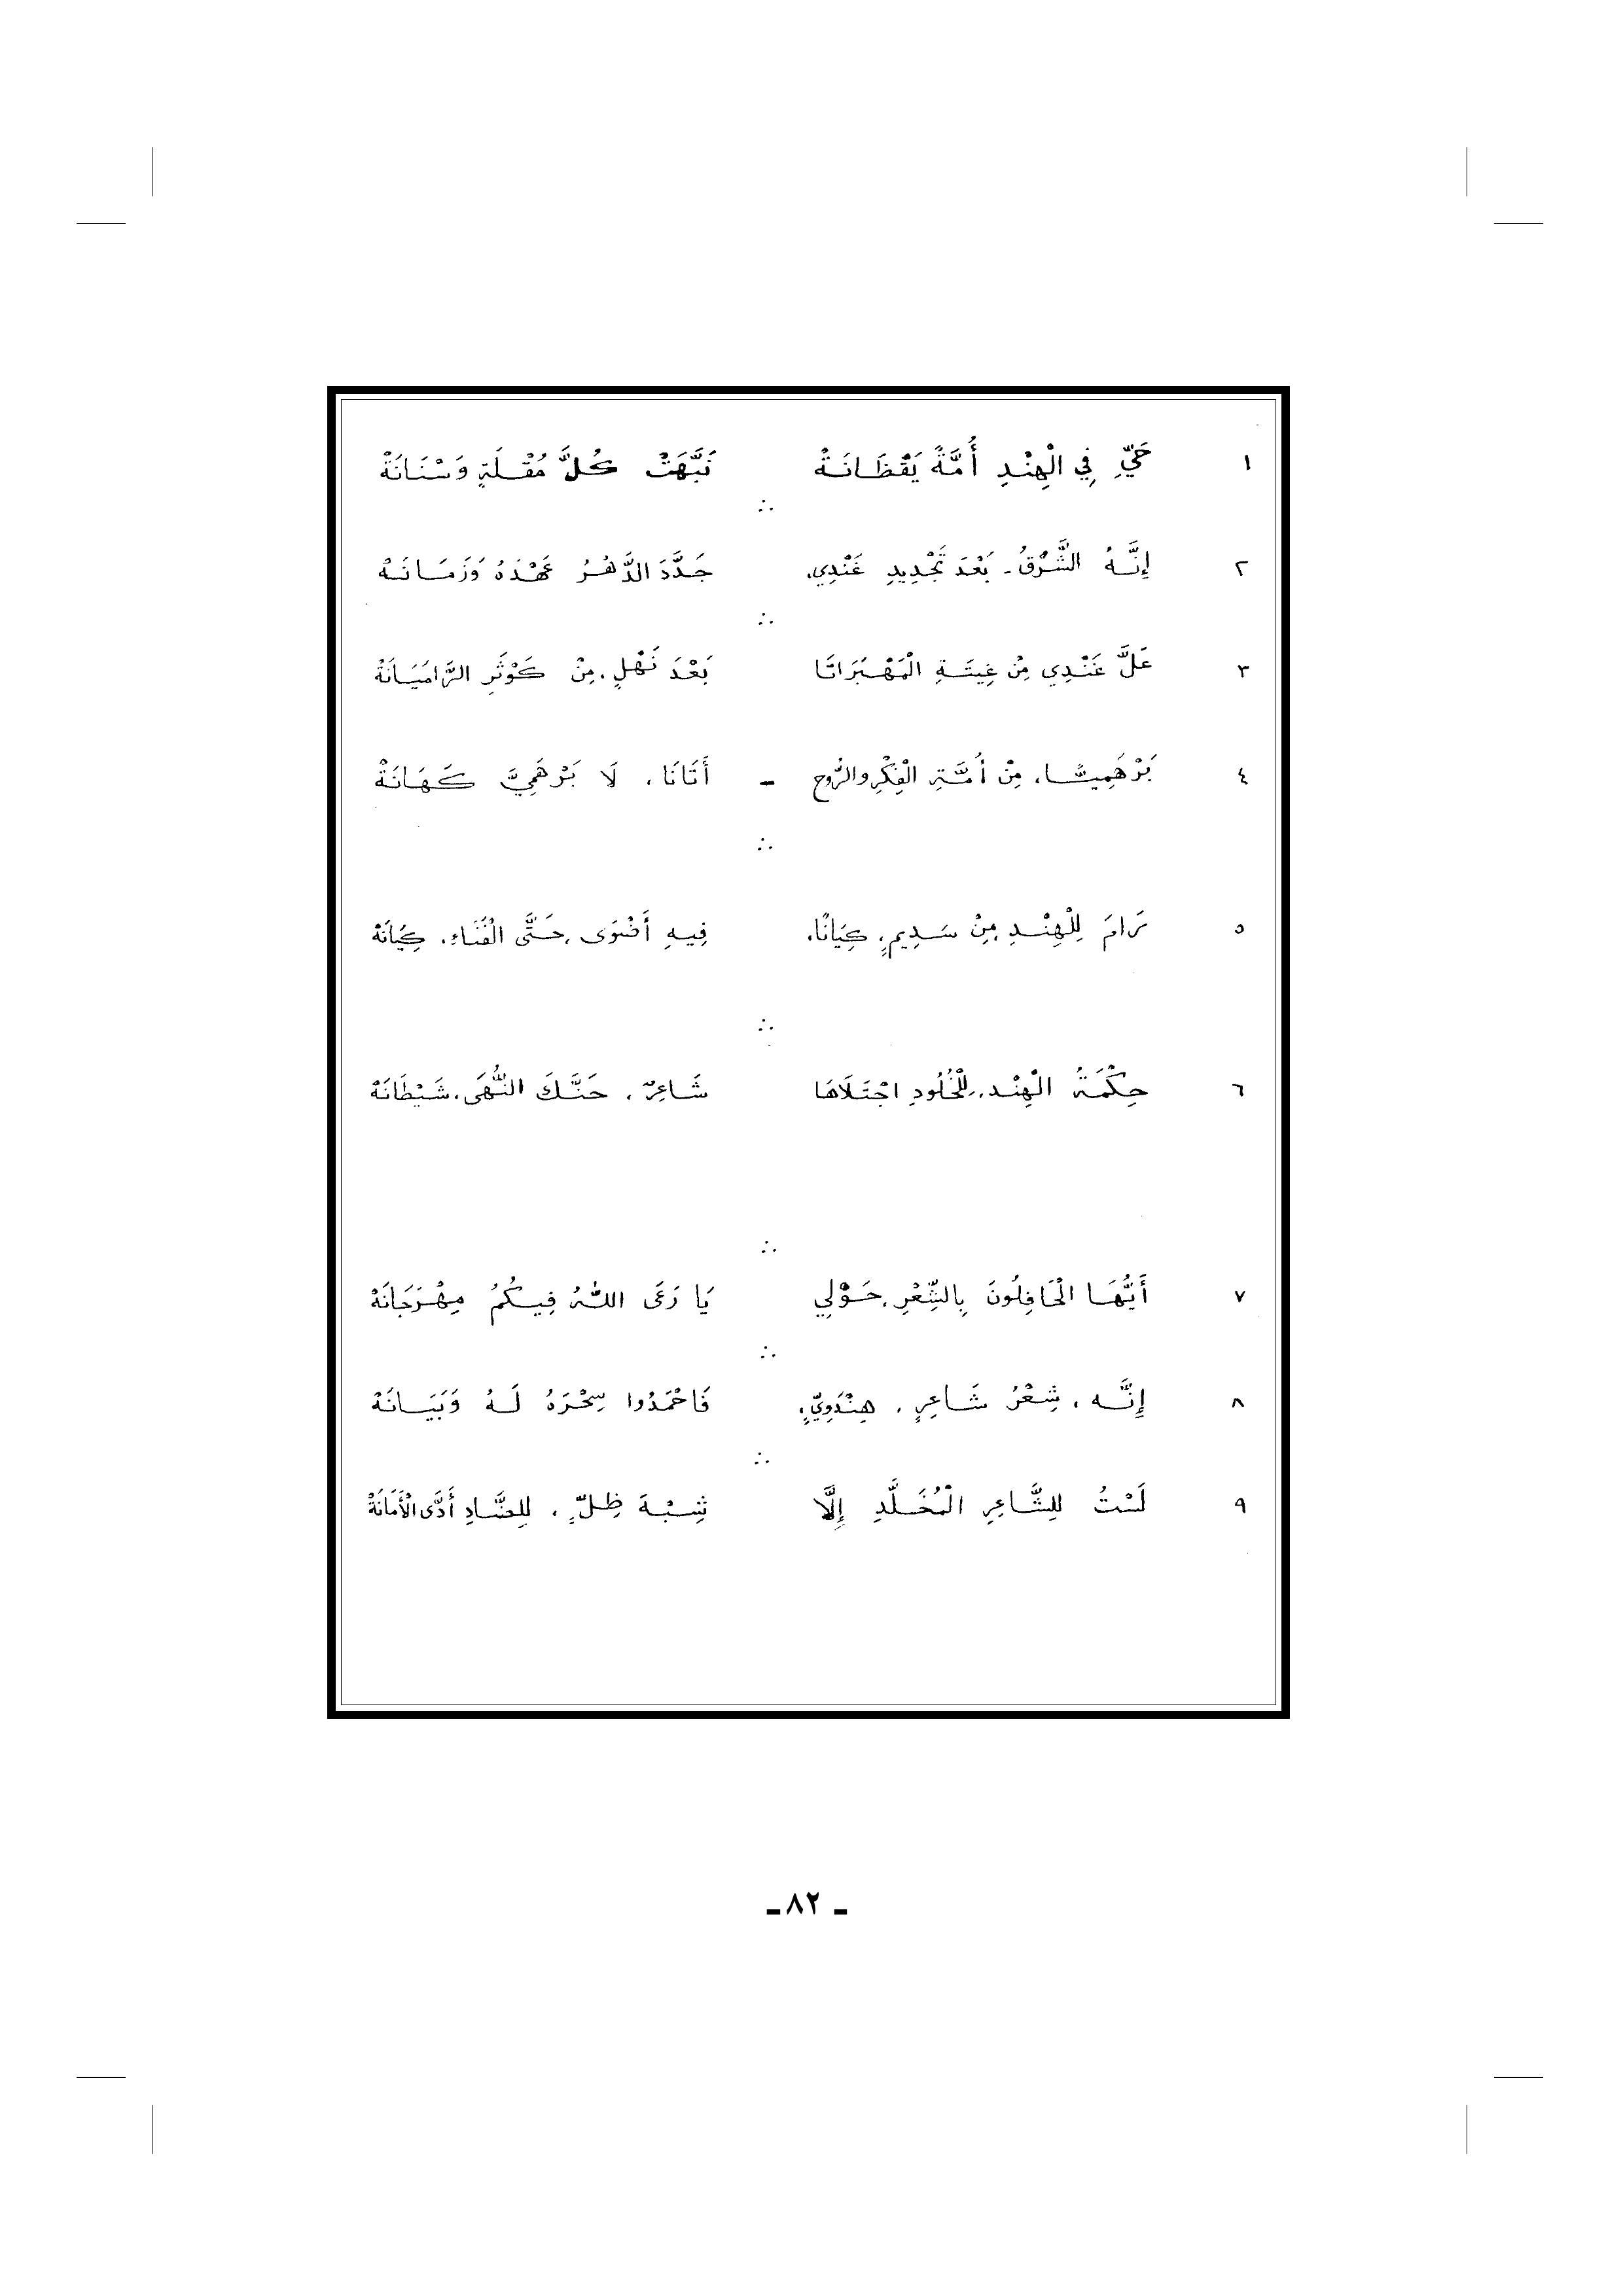 ١ حَيِّ فِي الْهِنْدِ أُمَّةً يَقْظَانَةْ نَبَّهَتْ كُلَّ مُقْلَةٍ وَسْنَانَةْ
∴
٢ إِنَّهُ الشَّرْقُ ـ بَعْدَ تَجْدِيدِ غَنْدِي، جَدَّدَ الدَّهْرُ عَهْدَهُ وَزَمَانَهْ
∴
٣ عَلَّ غَنْدِي مِنْ غِيتَةِ الْمَهْبَرَاتَا بَعْدَ نَهْلٍ، مِنْ كَوْثَرِ الرَّامَيَانَةْ
٤ بَرْهَمِيًّا، مِنْ أُمَّةِ الْفِكْرِ والرُّوحِ ـ أَتَانَا، لَا بَرْهَمِيَّ كَهَانَةْ
∴
٥ رَامَ لِلْهِنْدِ مِنْ سَدِيمٍ، كِيَانًا، فِيهِ أَضْوَى، حَتَّى الْفَنَاءِ، كِيَانَهْ
∴
٦ حِكْمَةُ الْهِنْدِ، لِلْخُلُودِ اجْتَلَاهَا شَاعِرٌ، حَنَّكَ النُّهَى، شَيْطَانَهْ
∴
٧ أَيُّهَا الْحَافِلُونَ بِالشِّعْرِ، حَوْلِي يَا رَعَى اللهُ فِيكُمُ مِهْرَجَانَهْ
∴
٨ إِنَّه، شِعْرُ شَاعِرٍ، هِنْدَوِيٍّ، فَاحْمَدُوا سِحْرَهُ لَهُ وَبَيَانَهْ
∴
٩ لَسْتُ لِلشَّاعِرِ الْمُخَلَّدِ إِلَّا شِبْهَ ظِلٍّ، لِلضَّادِ أَدَّى الْأَمَانَةْ
ـ ٨٢ ـ